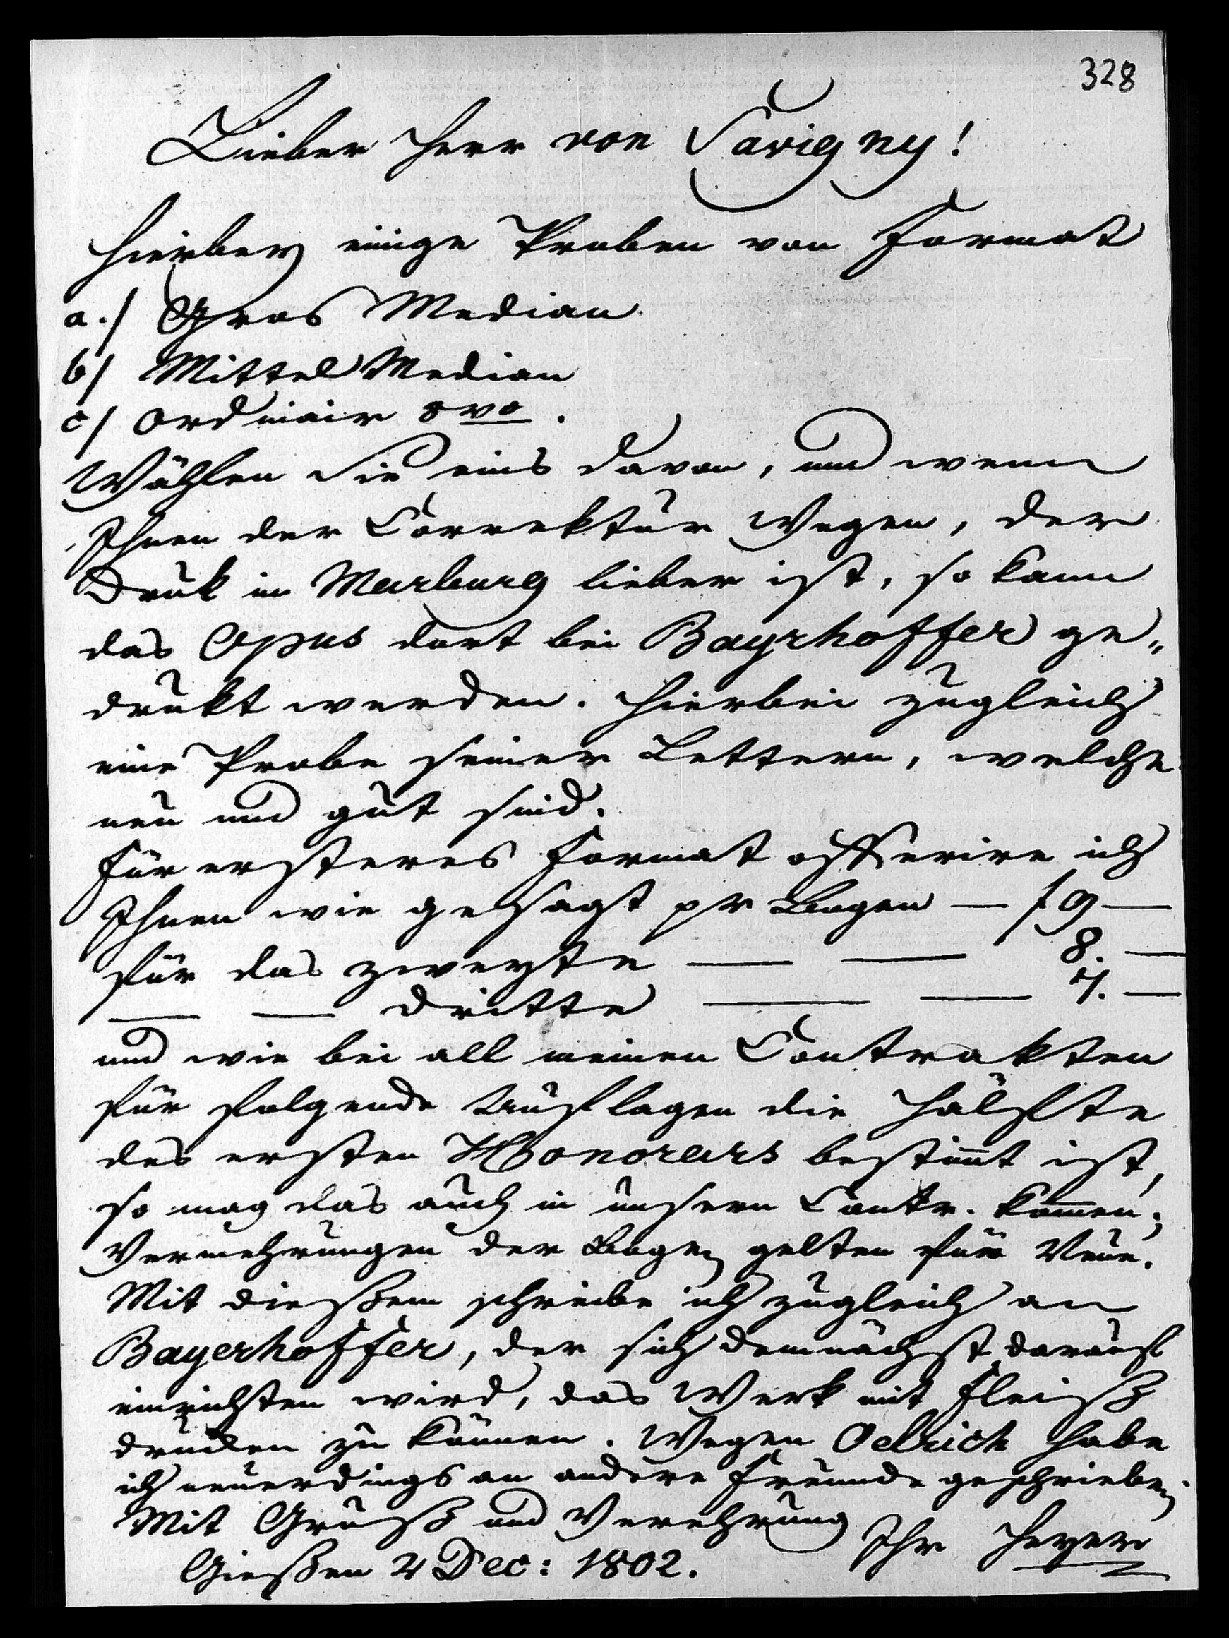 328
Lieber Herr von Savigny!
Hierbey einige Proben von Format
a./ Gros Median
b/ Mittel Median
c/ Ordinair 8vo.
Wählen Sie eins davon, und wenn
Ihnen der Correktur wegen, der
Druk in Marburg lieber ist, so kann
das Opus dort bei Bayrhoffer ge„
drukt werden. Hierbei zugleich
eine Probe seiner Lettern, welche
neu und gut sind.
Für ersteres Format offerire ich
Ihnen wie gesagt pr Bogen — f 9 —
für das zweyte — — 8. —
— — dritte — — 7. —
und wie bei all meinen Contrakten
für folgende Auflagen die Hälfte
des ersten Honorars bestimt ist,
so mag das auch in unsern Contr. kommen;
Vermehrungen der Bogen gelten für Neue.
Mit dießem schreibe ich zugleich an
Bayerhoffer, der sich demnächst darauf
einrichten wird, das Werk mit Fleiß
drucken zu können. Wegen Oelrich habe
ich neuerdings an andere Freunde geschrieben.
Mit Gruß und Verehrung
Ihr Heyer
Gießen 2 Dec: 1802.